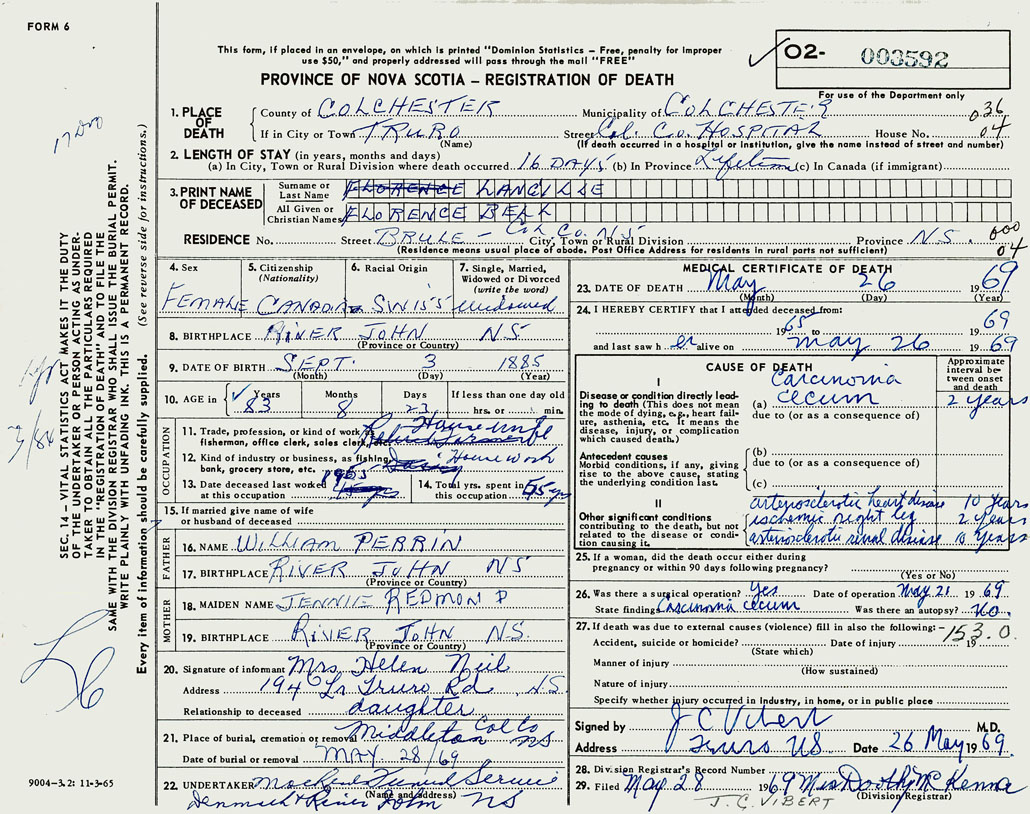 FORM 6
This form, if placed in an envelope, on which is printed "Dominion Statistics – Free, penalty for improper
use $50," and properly addressed will pass through the mail "FREE"
O2- 003592
PROVINCE OF NOVA SCOTIA – REGISTRATION OF DEATH
For use of the Department only
036
04
17
SEC. 14 – VITAL STATISTICS ACT MAKES IT THE DUTY
OF THE UNDERTAKER OR PERSON ACTING AS UNDER-
TAKER TO OBTAIN ALL THE PARTICULARS REQUIRED
IN THE "REGISTRATION OF DEATH" AND TO FILE THE
SAME WITH THE DIVISION REGISTRAR WHO SHALL ISSUE THE BURIAL PERMIT.
WRITE PLAINLY WITH UNFADING INK. THIS IS A PERMANENT RECORD.
Every item of information should be carefully supplied. (See reverse side for instructions.)
1. PLACE OF DEATH
County of COLCHESTER Municipality of COLCHESTER
If in City or Town TRURO Street Col. Co. HOSPITAL House No.
(Name) (If death occurred in a hospital or institution, give the name instead of street and number)
2. LENGTH OF STAY (in years, months and days)
(a) In City, Town or Rural Division where death occurred 16 DAYS (b) In Province Lifetime (c) In Canada (if immigrant)
3. PRINT NAME OF DECEASED
Surname or Last Name FLORENCE LANGILLE
All Given or Christian Names FLORENCE BELL
RESIDENCE No. Street BRULE – COL CO. NS City, Town or Rural Division Province NS.
000
04
(Residence means usual place of abode. Post Office Address for residents in rural parts not sufficient)
4. Sex FEMALE
5. Citizenship (Nationality) CANADIAN
6. Racial Origin SWISS
7. Single, Married, Widowed or Divorced (write the word) widowed
8. BIRTHPLACE RIVER JOHN NS
(Province or Country)
9. DATE OF BIRTH SEPT. 3 1885
(Month) (Day) (Year)
10. AGE in Years 83 Months 8 Days 23 If less than one day old hrs. or min.
OCCUPATION
11. Trade, profession, or kind of work as fisherman, office clerk, sales clerk, etc. Housewife
12. Kind of industry or business, as fishing, bank, grocery store, etc. House work
13. Date deceased last worked at this occupation 1965
14. Total yrs. spent in this occupation 65 yrs
15. If married give name of wife or husband of deceased
FATHER
16. NAME WILLIAM PERRIN
17. BIRTHPLACE RIVER JOHN NS
(Province or Country)
MOTHER
18. MAIDEN NAME JENNIE REDMOND
19. BIRTHPLACE RIVER JOHN NS.
(Province or Country)
20. Signature of informant Mrs Helen Neil
Address 194 Lr Truro Rd NS
Relationship to deceased daughter
21. Place of burial, cremation or removal Middleton Col Co NS
Date of burial or removal MAY 28/69
22. UNDERTAKER Funeral Service
(Name and address)
River John NS
MEDICAL CERTIFICATE OF DEATH
23. DATE OF DEATH May 26 1969
(Month) (Day) (Year)
24. I HEREBY CERTIFY that I attended deceased from:
1965 to 1969
and last saw her alive on May 26 1969
CAUSE OF DEATH
Approximate interval between onset and death
I
Disease or condition directly leading to death (This does not mean the mode of dying, e.g., heart failure, asthenia, etc. It means the disease, injury, or complication which caused death.)
(a) Carcinoma cecum 2 years
due to (or as a consequence of)
Antecedent causes
Morbid conditions, if any, giving rise to the above cause, stating the underlying condition last.
(b)
due to (or as a consequence of)
(c)
II
Other significant conditions contributing to the death, but not related to the disease or condition causing it.
arteriosclerotic heart disease 10 years
ischemic right leg 2 years
arteriosclerotic renal disease 10 years
25. If a woman, did the death occur either during
pregnancy or within 90 days following pregnancy?
(Yes or No)
26. Was there a surgical operation? Yes Date of operation May 21 1969
State findings Carcinoma cecum Was there an autopsy? No.
27. If death was due to external causes (violence) fill in also the following:–
153.0
Accident, suicide or homicide? Date of injury 19
(State which)
Manner of injury
(How sustained)
Nature of injury
Specify whether injury occurred in industry, in home, or in public place
Signed by J C Vibert M.D.
Address Truro NS Date 26 May 1969.
28. Division Registrar's Record Number
29. Filed May 28 1969 Miss Dorothy McKenna
(Division Registrar)
J. C. VIBERT
9004–3.2: 11-3-65